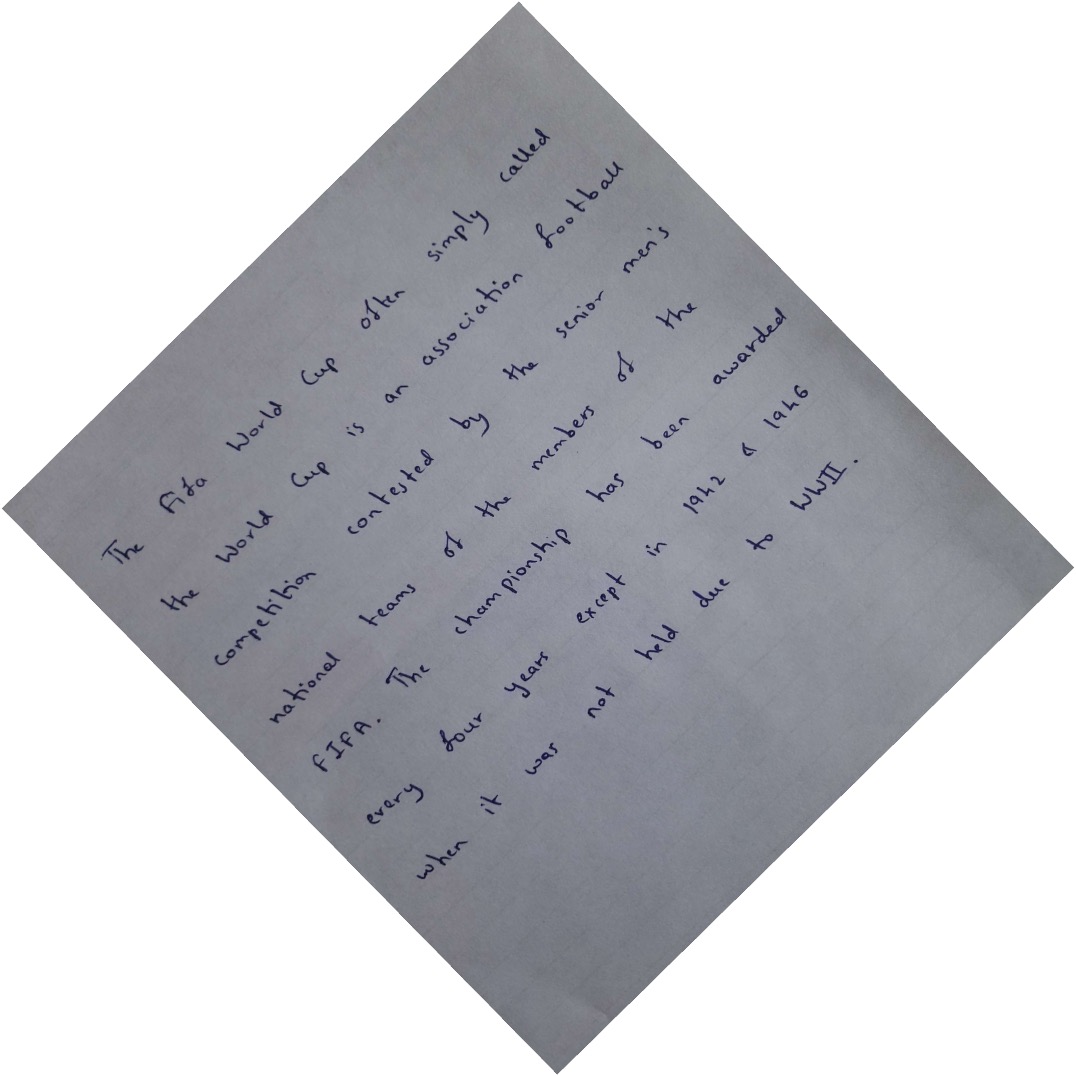 The Fifa World Cup often simply called
the World Cup is an association football
competition contested by the senior men's
national teams of the members of the
FIFA. The championship has been awarded
every four years except in 1942 & 1946
when it was not held due to WWII.